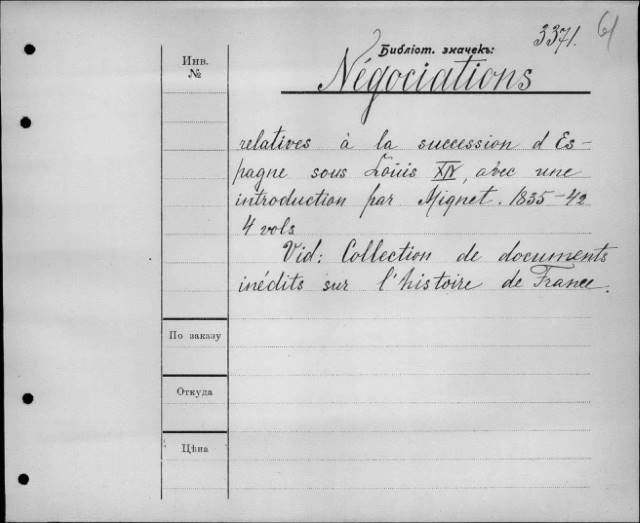 3371. 61
Библіот. значекъ:
Инв.
№
Négociations
relatives à la succession d'Es-
pagne sous Louis XIV, avec une
introduction par Mignet. 1835-42
4 vols
Vid: Collection de documents
inédits sur l'histoire de France.
По заказу
Откуда
Цѣна